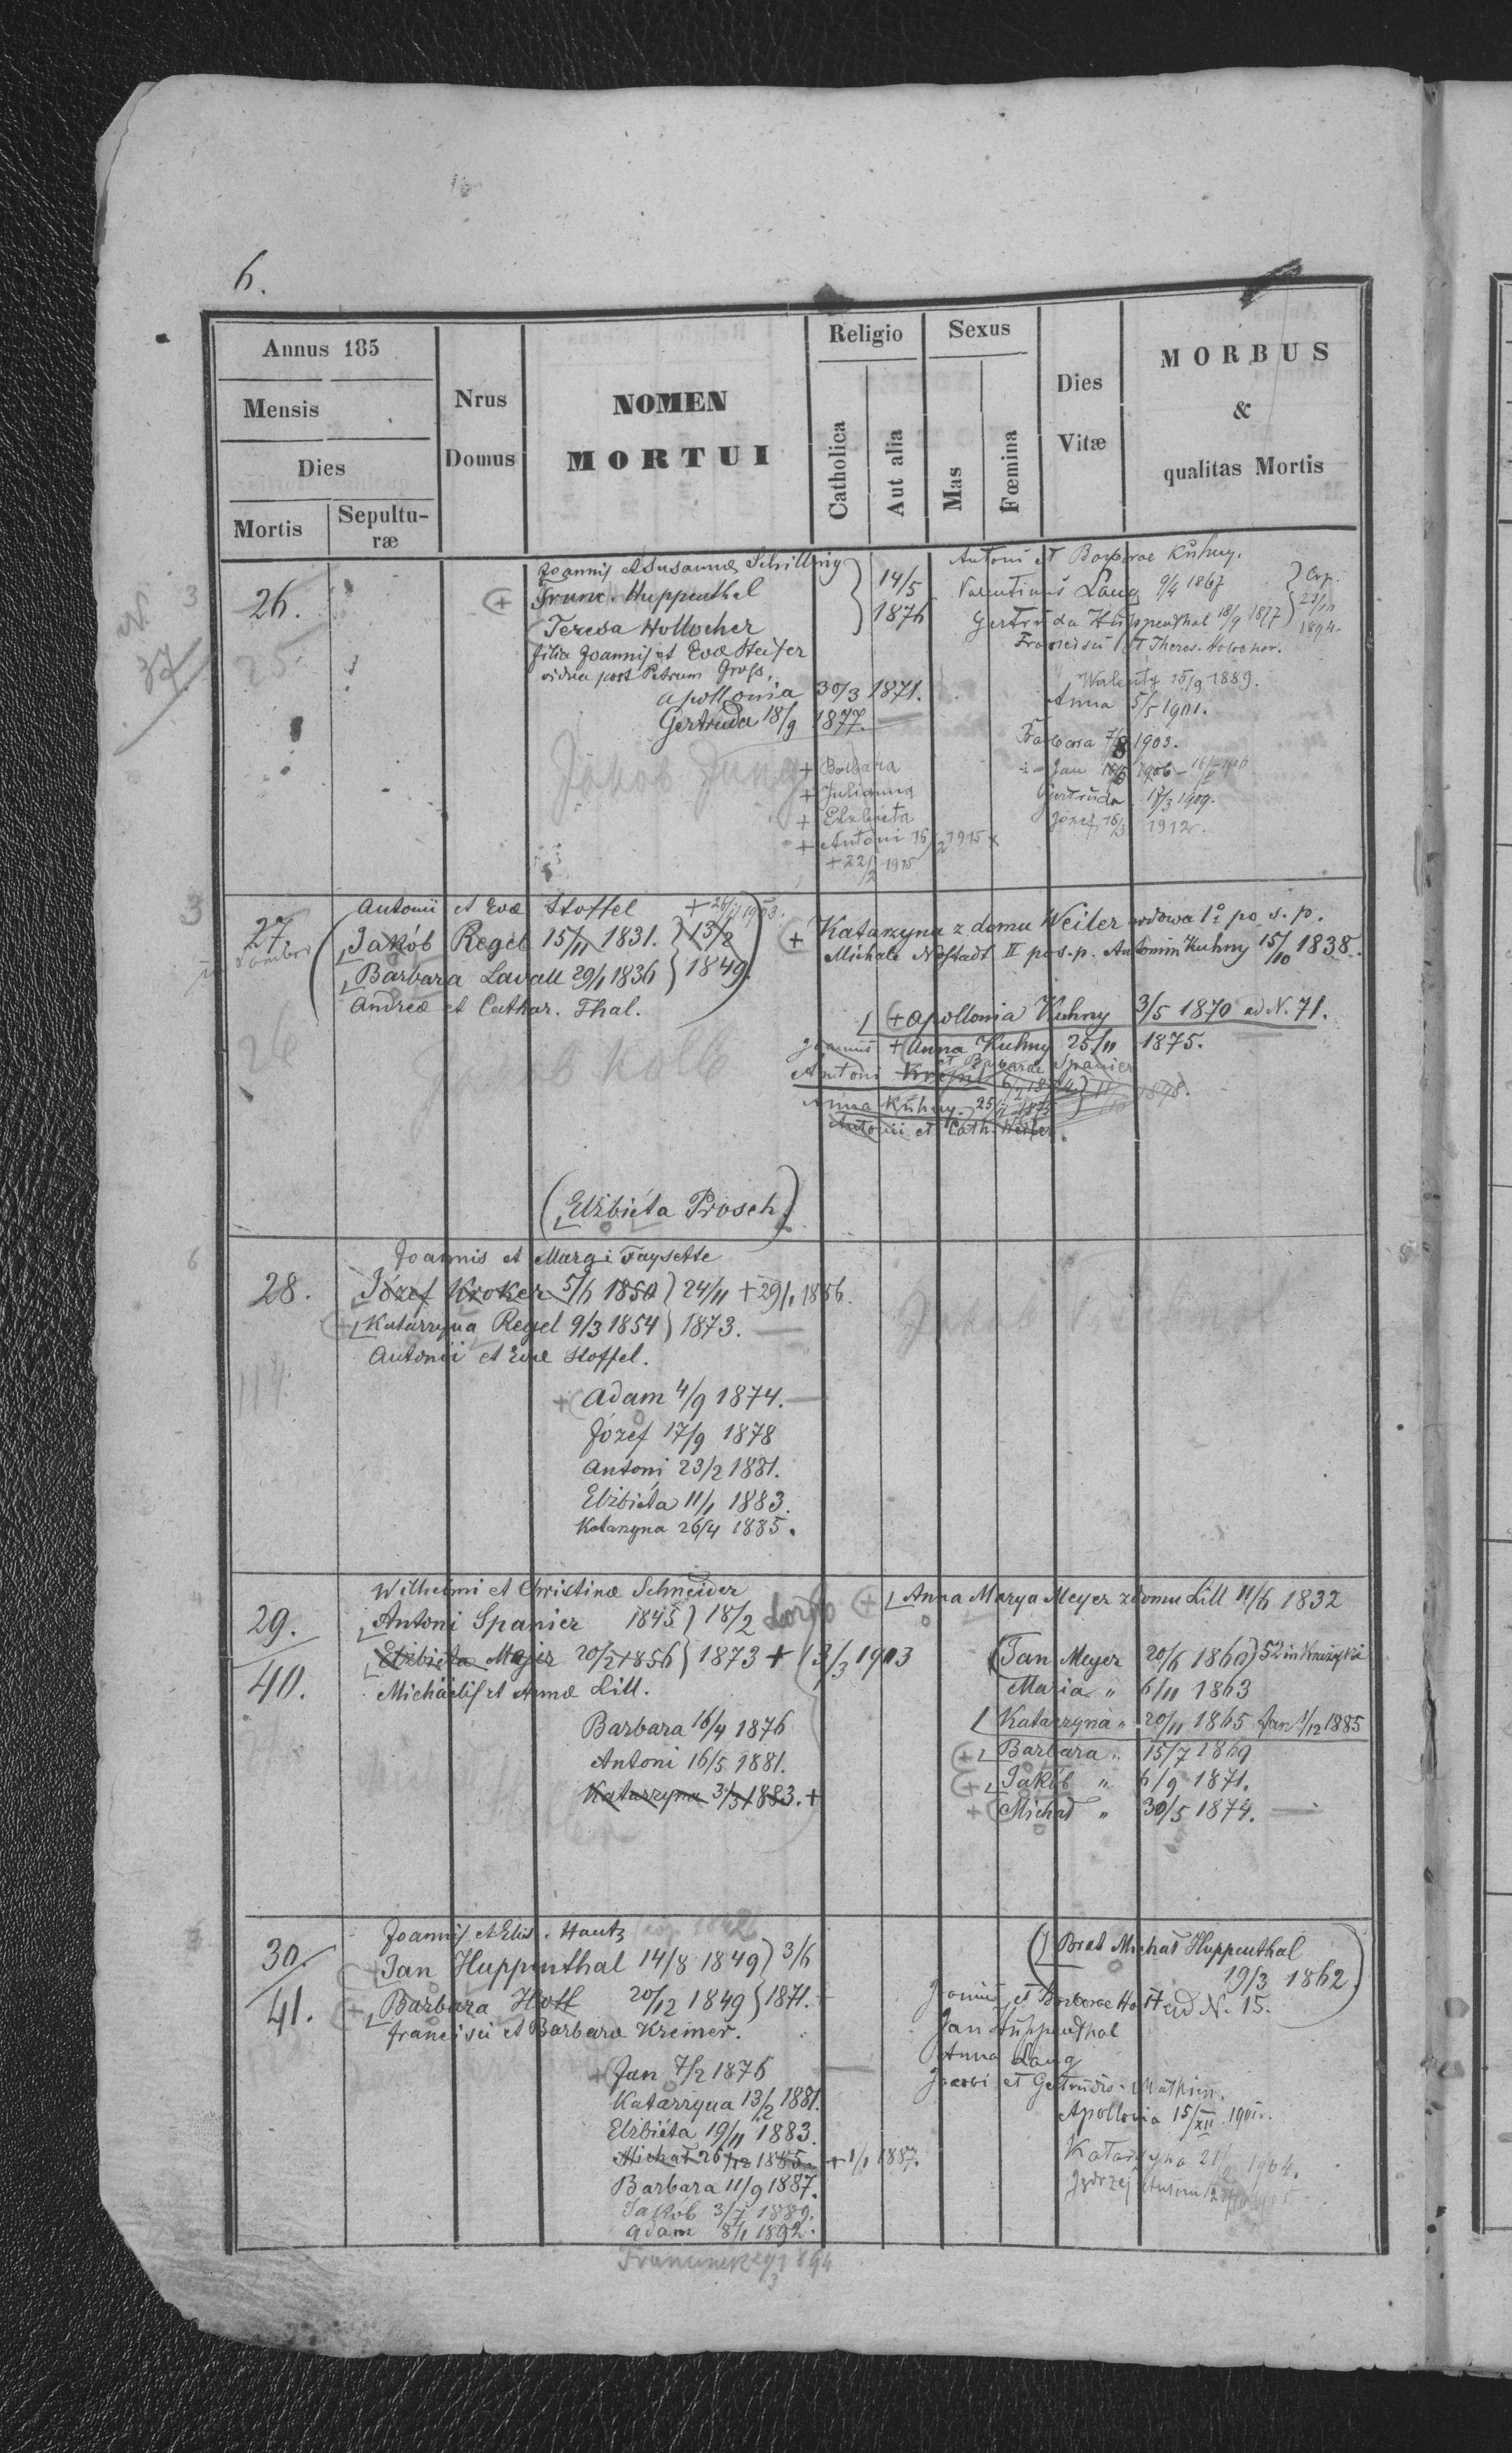 6.
Annus 185
Mensis
Dies
Mortis
Sepultu-
ræ
Nrus
Domus
NOMEN
MORTUI
Religio
Catholica
Aut alia
Sexus
Mas
Fœmina
Dies
Vitæ
MORBUS
&
qualitas Mortis
N.
37
3
26.
25
Joannis et Susannae Schilling
Franc. Huppenthal
Teresa Hollocher
} 14/5
1876
filia Joannis et Evae
vidua post Petrum Gross,
Apollonia 30/3 1871.
Gertruda 18/9 1877.
Jakob Jung
+ Barbara
+ Julianna
+ Elzbieta
+ Antoni 16/2 1915 x
+ 22/2 1915
Antoni et Barbarae Kuhny.
Valentinus Lang 9/4 1867
Gertruda Huppenthal 18/9 1877
1894.
Francisci et Theres.
Walenty 15/9 1889.
Anna 5/5 1901.
Barbara 7/8 1903.
Jan 1906
Gertruda 17/3 1909.
Józef 16/3 1912.
3
27.
Antonii et Evae Stoffel
Jakób Regel 15/11 1831. } 13/2
Barbara Lavall 29/1 1836 } 1849.
Andreae et Cathar. Thal.
Jakob Kolb
(Elżbiéta Prosch)
+ Katarzyna z domu Weiler wdowa 1º po s. p.
Michale Nostadt II po s. p. Antonim Kuhny 15/10 1838.
+ Apollonia Kuhny 3/5 1870 ad N. 71.
+ Anna Kuhny 25/11 1875.
Joannis et Barbarae Spanier
Antoni
1898.
Anna Kuhny 25/11 1875
Antonii et Cath. Weiler.
6
28.
114
Joannis et Marg. Faysette
Józef Kroker 5/6 1850 } 24/11 + 29/1 1886.
Katarzyna Regel 9/3 1854 } 1873.
Antonii et Evae Stoffel.
+ Adam 4/9 1874.
Józef 17/9 1878
Antoni 23/2 1881.
Elżbiéta 11/1 1883.
Katarzyna 26/4 1885.
29.
40.
Wilhelmi et Christinae Schneider
Antoni Spanier 1845 } 18/2
Elżbieta Majer 20/2 1856 } 1873 + 13/3 1903
Michaelis et Annae Lill.
Barbara 16/4 1876
Antoni 16/5 1881.
Katarzyna 3/3 1883. +
+ Anna Marya Meyer z domu Lill 11/6 1832
Jan Meyer 20/6 1860
Maria " 6/11 1863
Katarzyna " 20/11 1865 Jan 1/12 1885
+ Barbara " 15/7 1869
+ Jakób " 6/9 1871.
+ Michał " 30/5 1874.
30.
41.
Joannis et Elis. Hautz
Jan Huppenthal 14/8 1849 } 3/6
Barbara Hott 20/12 1849 } 1871.
Francisci et Barbarae Kremer.
+ Jan 7/2 1876
Katarzyna 13/2 1881.
Elżbiéta 19/11 1883.
Michał 26/12 1885. + 1/1 1887.
Barbara 11/9 1887.
Jakób 3/7 1889.
Adam 8/1 1892.
Franciszek 1894
Brat Michał Huppenthal
19/3 1862.
ad N. 15.
Joannis et Barbarae Hott
Jan Huppenthal
Anna Lang
Jacobi et Gertrudis
Apollonia 15/XII 1901.
Katarzyna 1904.